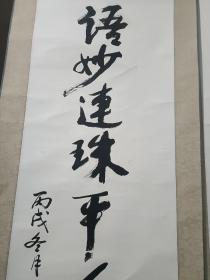 语妙连珠平
丙戌冬月